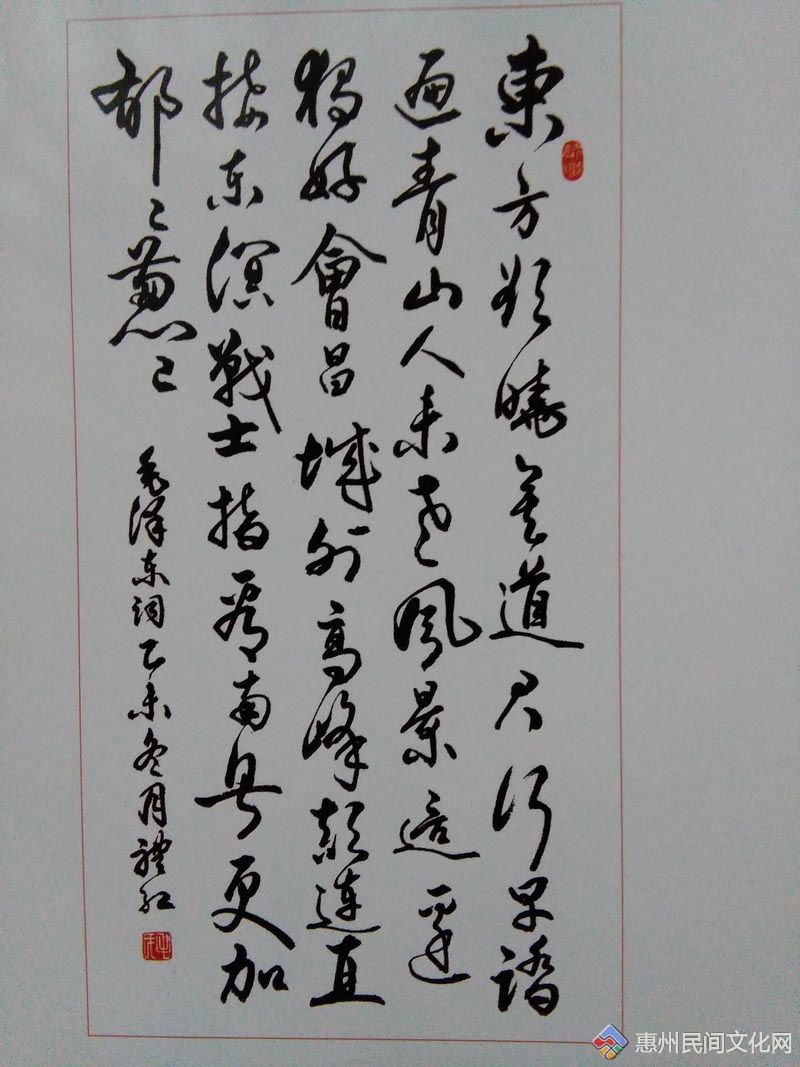 東方欲曉莫道君行早踏
遍青山人未老風景這邊
獨好會昌城外高峰顛連直
接东溟戰士指看南粤更加
郁〻蔥〻
毛泽东词乙未冬月
惠州民间文化网